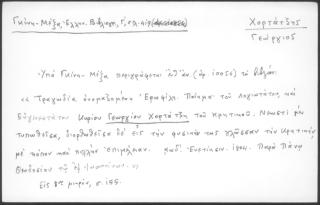 Γκίνη-Μέξα, Ἑλλην. Βιβλιογρ., Γ',
Χορτάτζης
Γεώργιος
Ὑπὸ Γκίνη-Μέξα περιγράφεται (ἀρ. 10056) τὸ βιβλίον:
«Τραγωδία ὀνομαζομένη Ἐρωφίλη. Ποίημα τοῦ λογιωτάτου, καὶ
εὐγενεστάτου Κυρίου Γεωργίου Χορτάτζη τοῦ Κρητικοῦ. Νεωστὶ
τυπωθεῖσα, διορθωθεῖσα δὲ εἰς τὴν φυσικήν της γλῶσσαν τὴν Κρητικὴν,
μὲ κόπον καὶ πολλὴν ἐπιμέλειαν. Ἐνετίησιν. 1804. Παρὰ Πάνῳ
Θεοδοσίου τῷ ἐξ Ἰωαννίνων.»
Εἰς 8ον μικρόν, σ. 155.